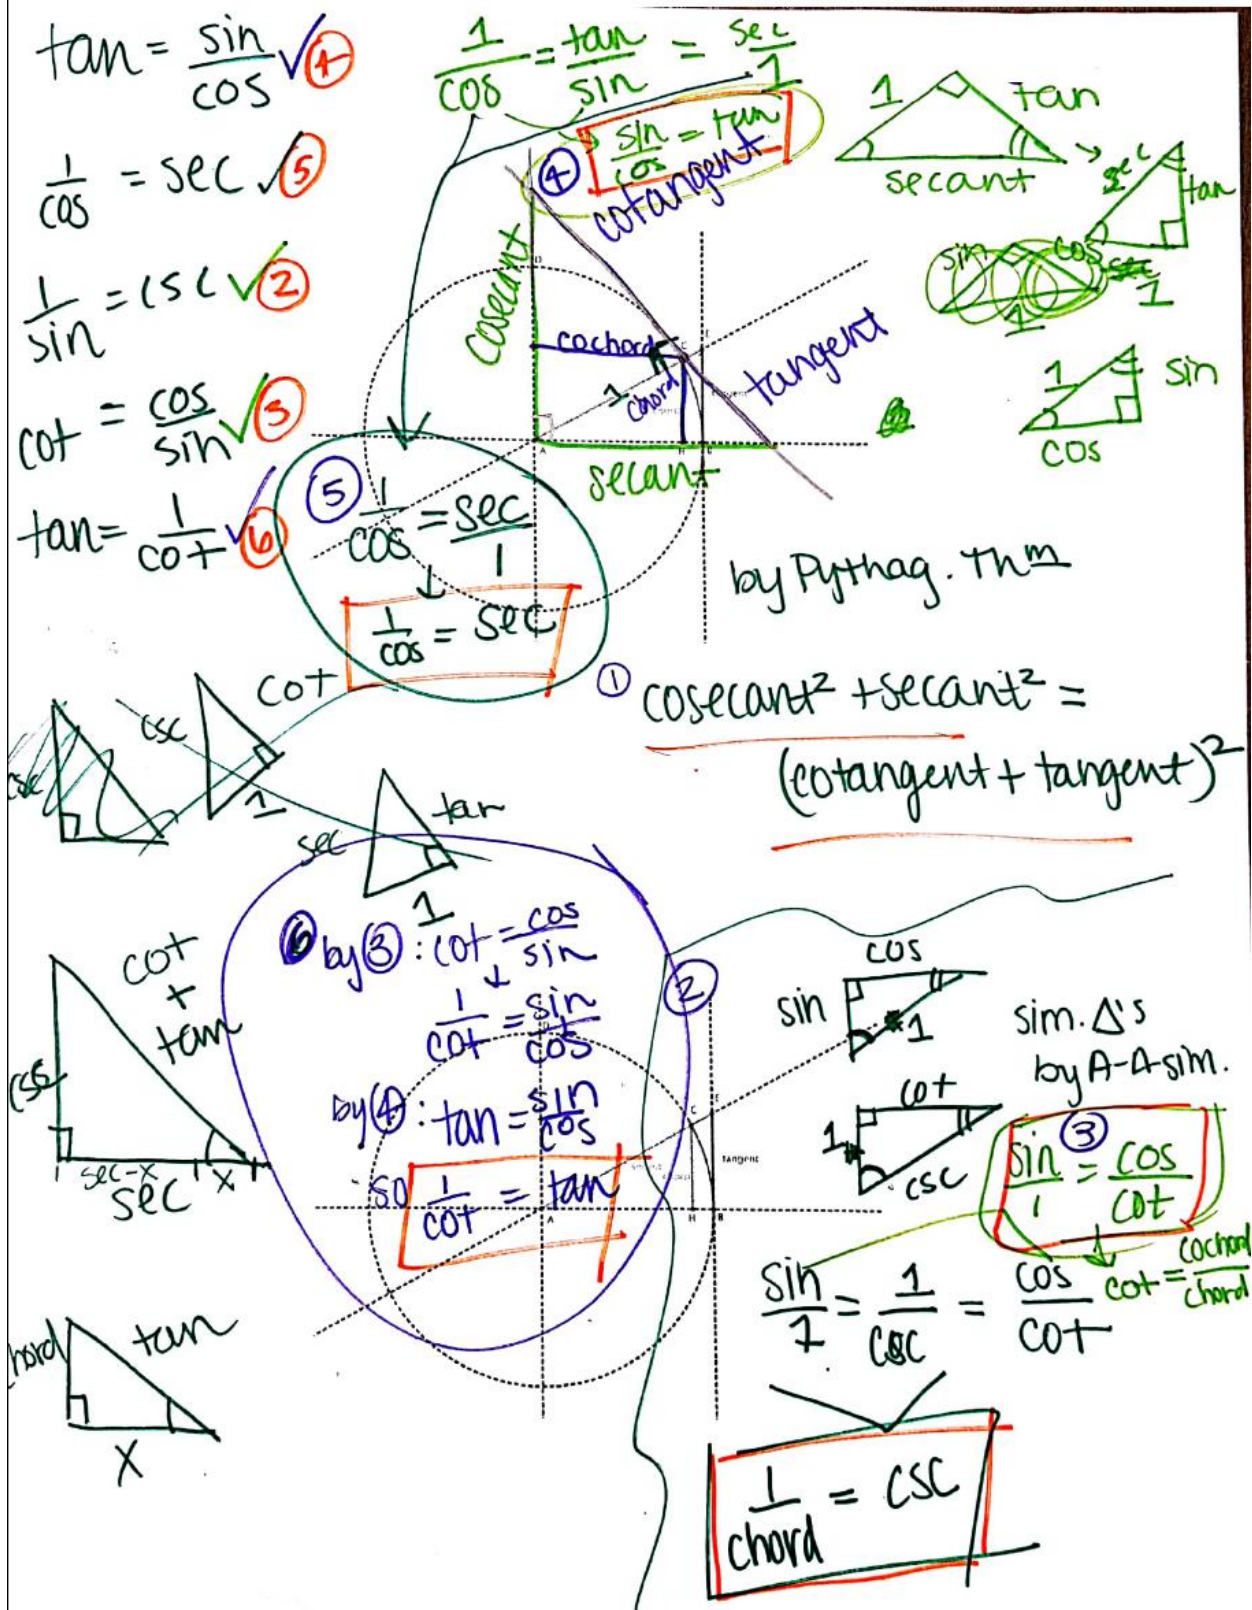 tan = sin/cos ✓ ④
1/cos = sec ✓ ⑤
1/sin = csc ✓ ②
cot = cos/sin ✓ ③
tan = 1/cot ✓ ⑥
1/cos = tan/sin = sec/1
④ sin/cos = tan
cotangent
cosecant
cochord
1
chord
tangent
secant
D
C
E
A
H
B
1 tan
secant
sec tan
sin cos
1
1
1 sin
cos
⑤ 1/cos = sec/1
↓
1/cos = sec
by Pythag. Thm
① cosecant² + secant² =
(cotangent + tangent)²
csc cot
1
sec tan
1
cot
+
tan
csc
sec-x x
sec
tan
x
⑥ by ③: cot = cos/sin
↓
1/cot = sin/cos
by ④: tan = sin/cos
so 1/cot = tan
②
D
C
E
tangent
A
H
B
cos
sin
1
sim. Δ's
by A-A sim.
cot
1
csc
③
sin/1 = cos/cot
↓
cot = cochord/chord
sin/1 = 1/csc = cos/cot
1/chord = csc